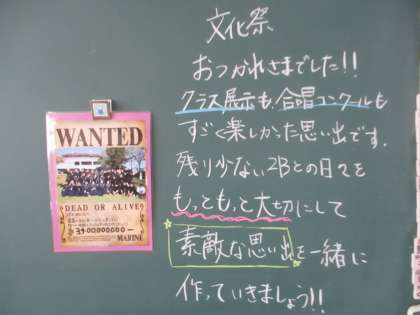 文化祭
おつかれさまでした!!
クラス展示も、合唱コンクールも
すごく楽しかった思い出です。
残り少ない2Bとの日々を
もっともっと大切にして
素敵な思い出を一緒に
作っていきましょう!!
WANTED
DEAD OR ALIVE
MARINE